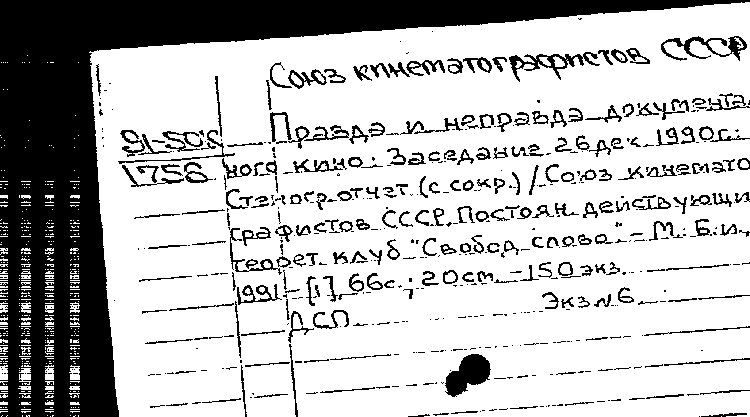 Союз кинематографистов СССР
Правда и неправда документаль
91-50/8
ного кино: Заседание 26 дек. 1990г.:
1758
Стеногр. отчет (с сокр.) / Союз кинемато
графистов СССР, Постоян. действующи
теорет клуб "Свобод. слово". - М.: Б.и.,
1991. - [1], 66с.; 20см. - 150 экз.
ДСП. Экз N6.